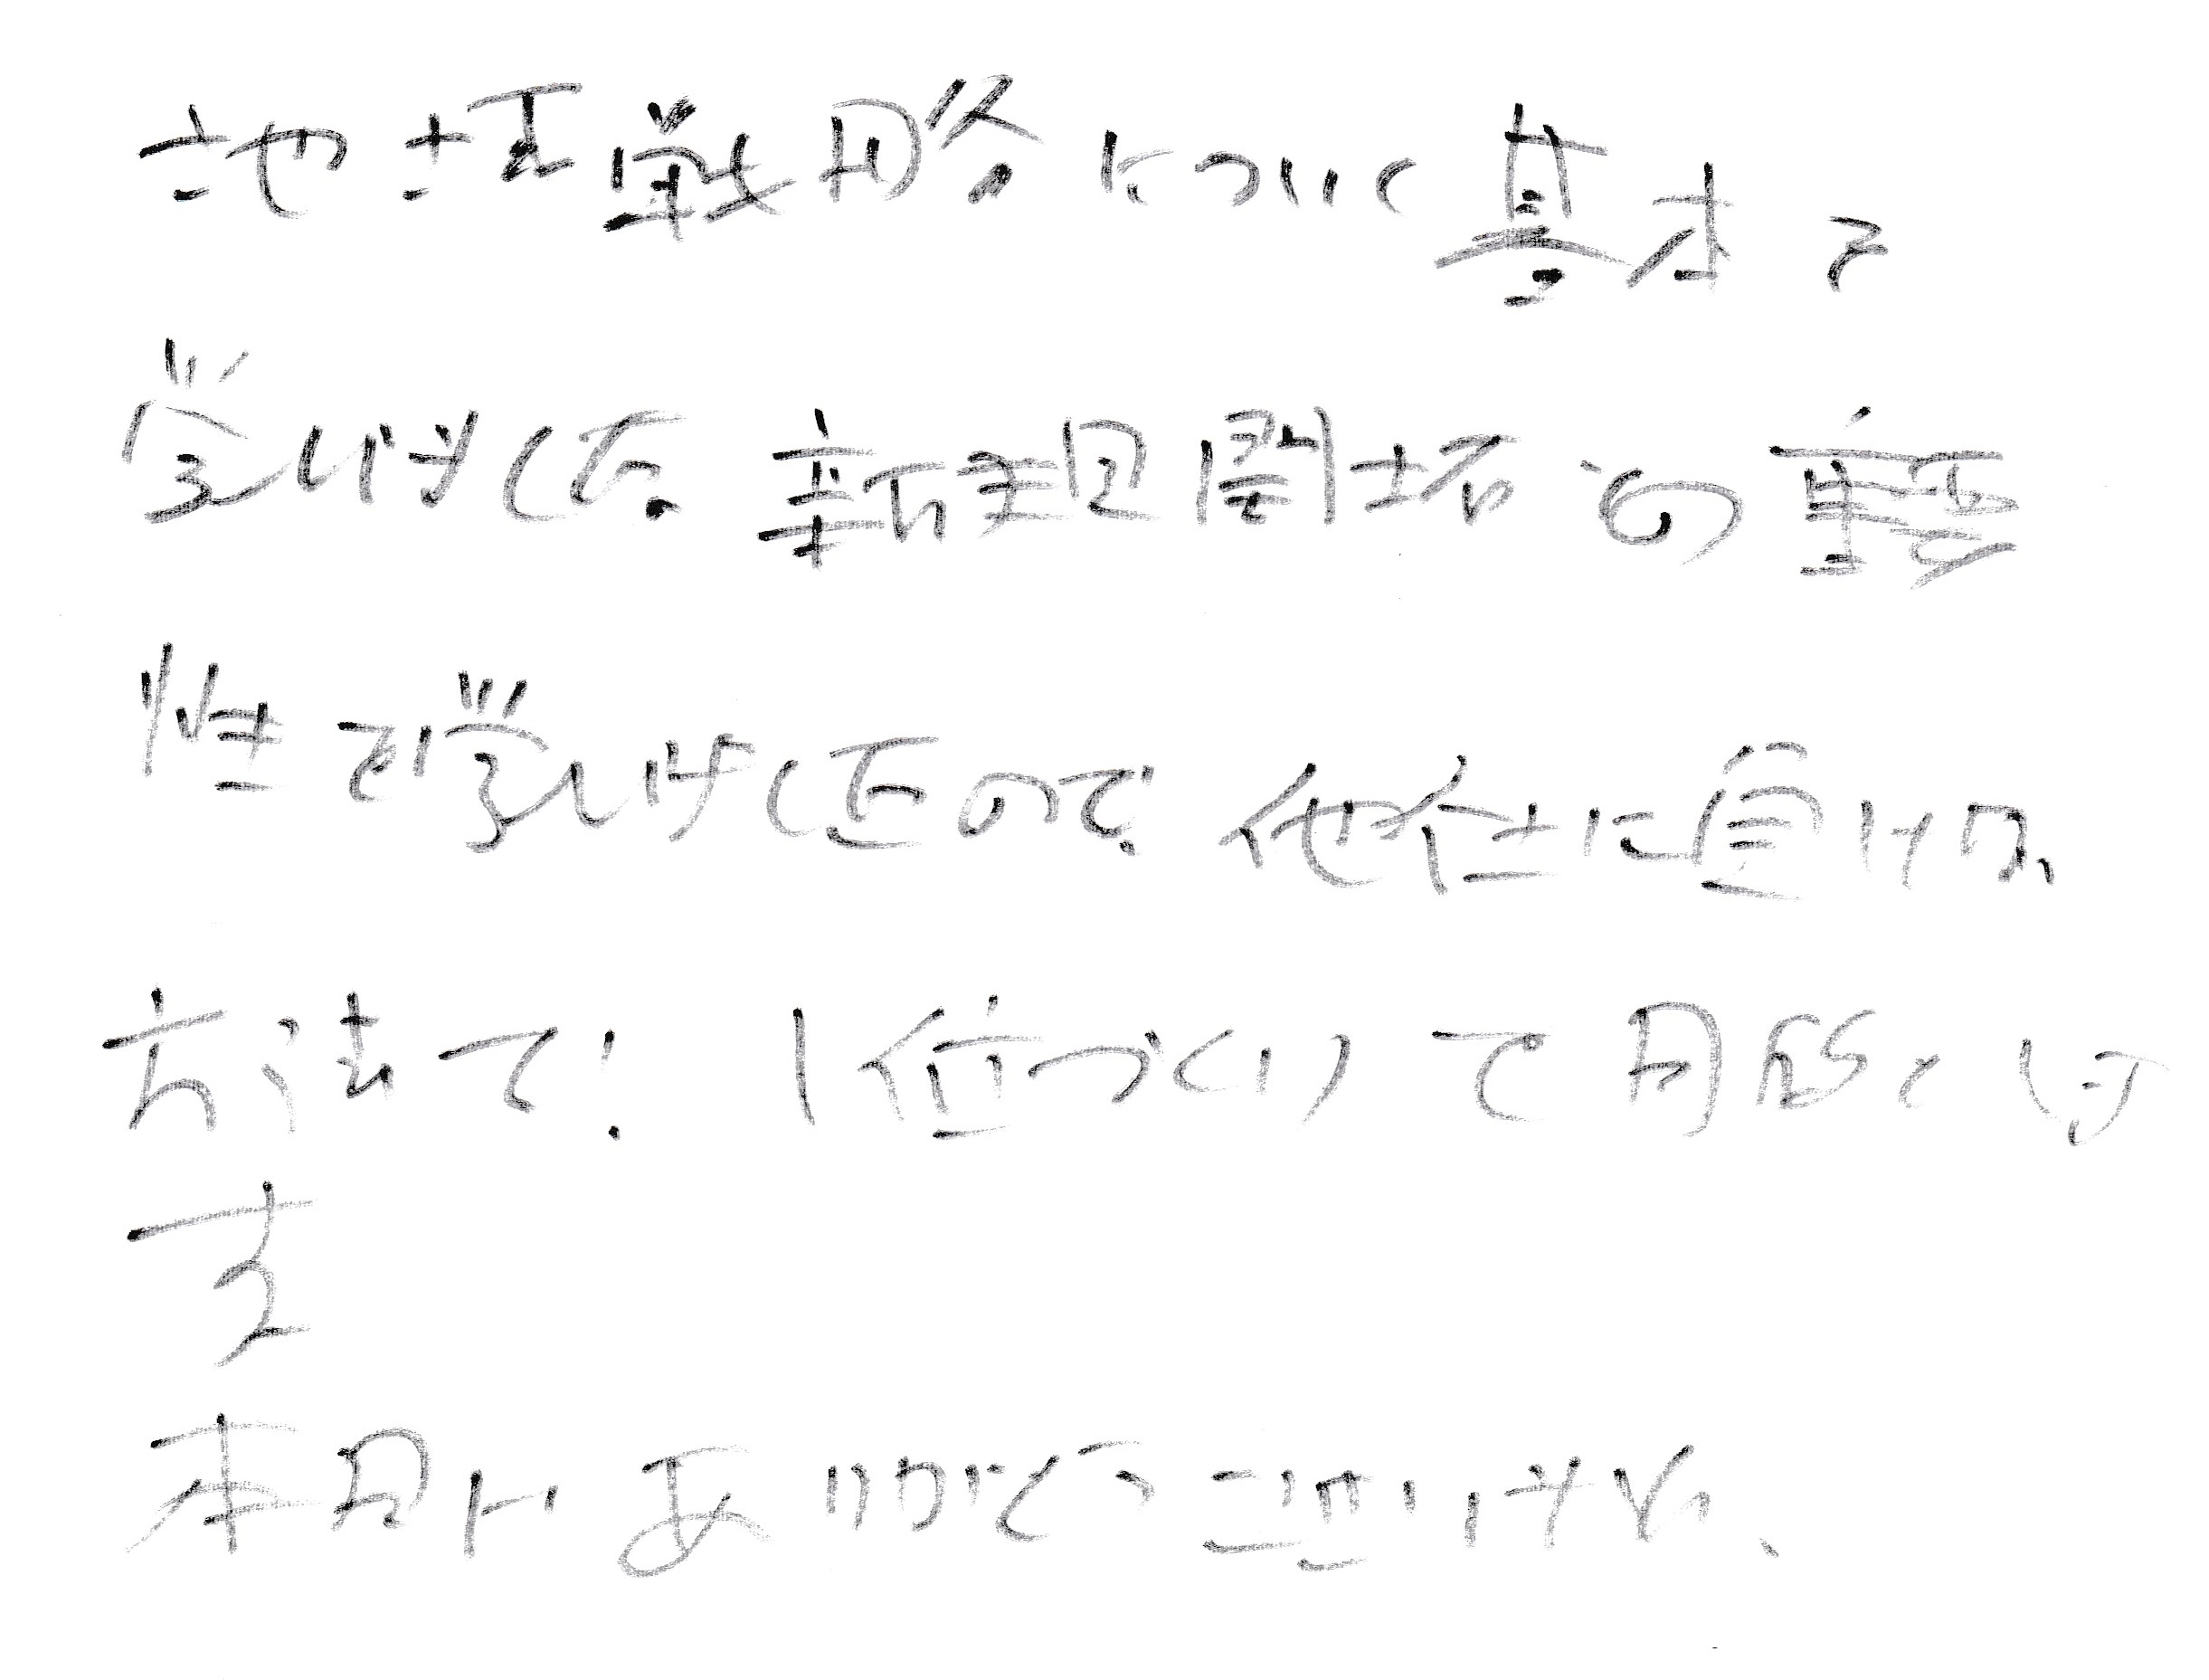 地域戦略について基本を
学びました。新規開拓の重要
性を学びましたので、他社に負けない
方法で! 1位づくりで頑張ります
本日はありがとうございました。